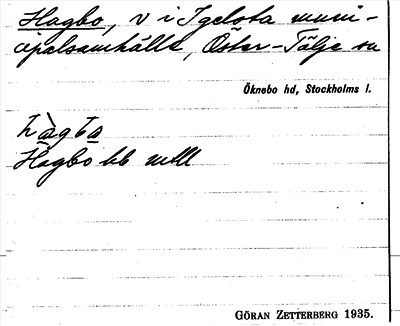 Hagbo, v i Igelsta muni-
cipalsamhälle, Öster-Tälje sn
Öknebo hd, Stockholms l.
Hagbo
GÖRAN ZETTERBERG 1935.